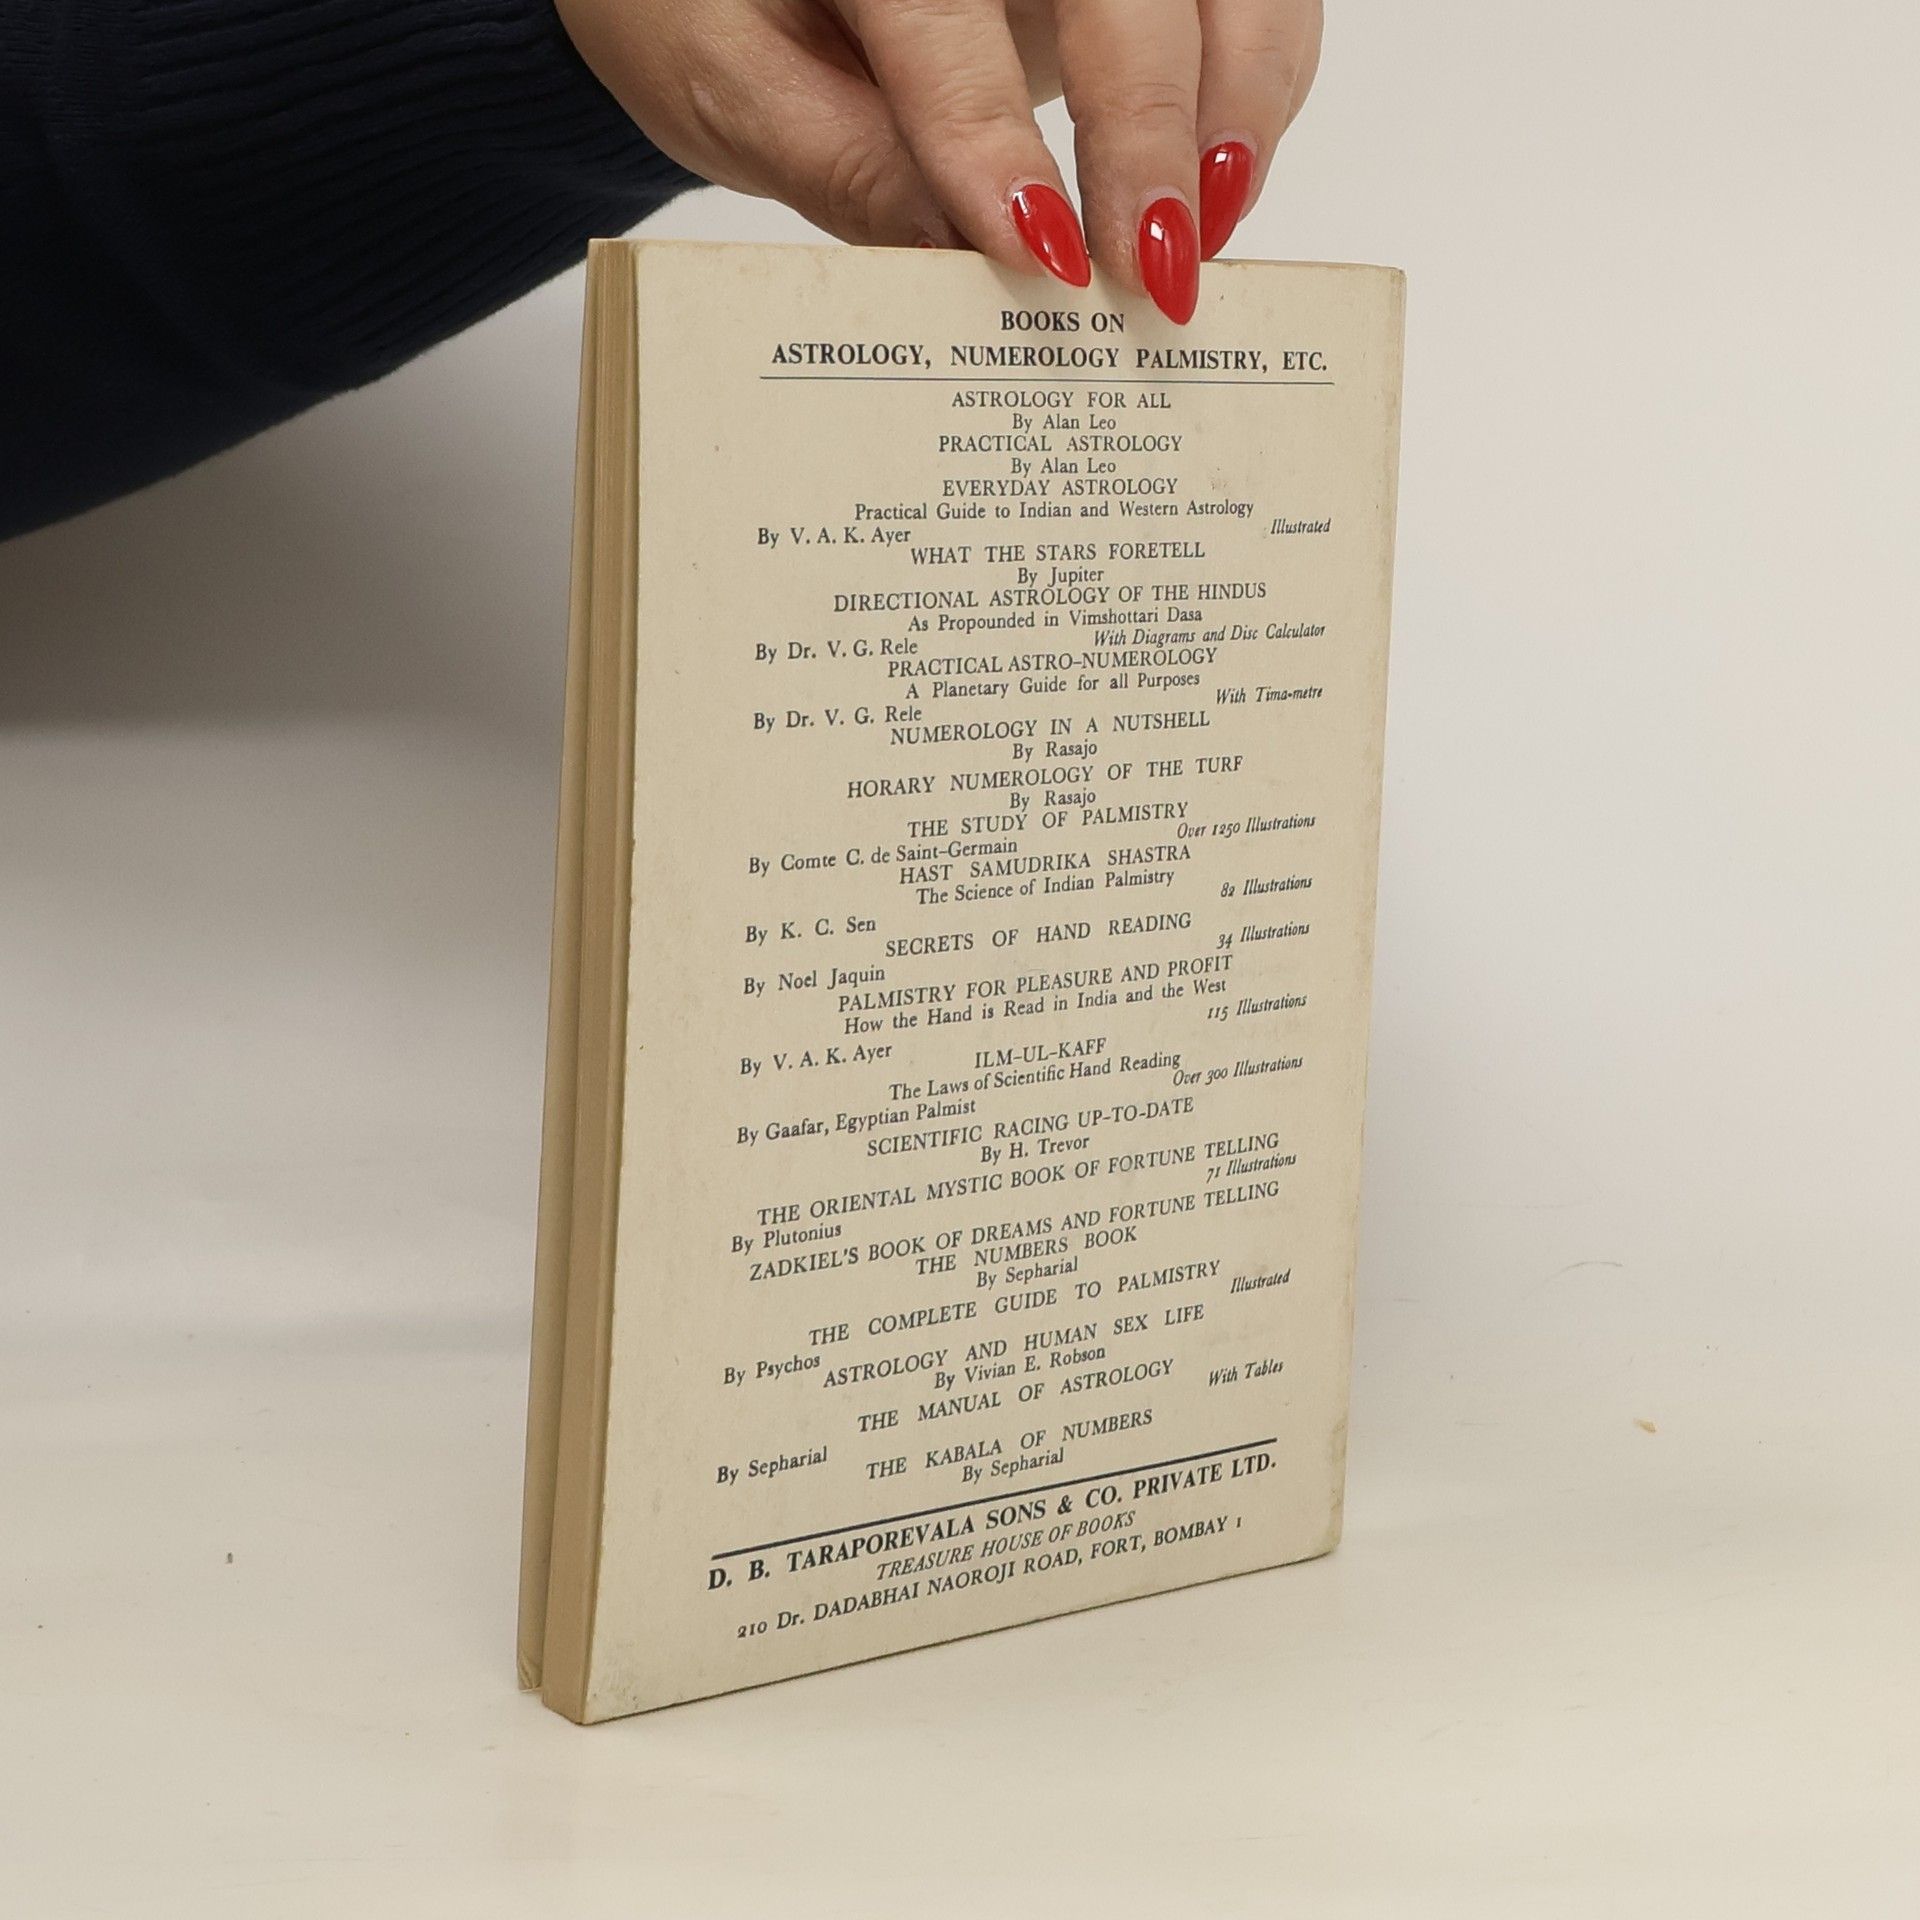 BOOKS ON
ASTROLOGY, NUMEROLOGY PALMISTRY, ETC.
ASTROLOGY FOR ALL
By Alan Leo
PRACTICAL ASTROLOGY
By Alan Leo
EVERYDAY ASTROLOGY
Practical Guide to Indian and Western Astrology
By V. A. K. Ayer Illustrated
WHAT THE STARS FORETELL
By Jupiter
DIRECTIONAL ASTROLOGY OF THE HINDUS
As Propounded in Vimshottari Dasa
By Dr. V. G. Rele With Diagrams and Disc Calculator
PRACTICAL ASTRO-NUMEROLOGY
A Planetary Guide for all Purposes
By Dr. V. G. Rele With Tima-metre
NUMEROLOGY IN A NUTSHELL
By Rasajo
HORARY NUMEROLOGY OF THE TURF
By Rasajo
THE STUDY OF PALMISTRY
By Comte C. de Saint-Germain Over 1250 Illustrations
HAST SAMUDRIKA SHASTRA
The Science of Indian Palmistry
By K. C. Sen 82 Illustrations
SECRETS OF HAND READING
By Noel Jaquin 34 Illustrations
PALMISTRY FOR PLEASURE AND PROFIT
How the Hand is Read in India and the West
By V. A. K. Ayer 115 Illustrations
ILM-UL-KAFF
The Laws of Scientific Hand Reading
By Gaafar, Egyptian Palmist Over 300 Illustrations
SCIENTIFIC RACING UP-TO-DATE
By H. Trevor
THE ORIENTAL MYSTIC BOOK OF FORTUNE TELLING
By Plutonius 71 Illustrations
ZADKIEL'S BOOK OF DREAMS AND FORTUNE TELLING
THE NUMBERS BOOK
By Sepharial
THE COMPLETE GUIDE TO PALMISTRY
By Psychos Illustrated
ASTROLOGY AND HUMAN SEX LIFE
By Vivian E. Robson
THE MANUAL OF ASTROLOGY
By Sepharial With Tables
THE KABALA OF NUMBERS
By Sepharial
D. B. TARAPOREVALA SONS & CO. PRIVATE LTD.
TREASURE HOUSE OF BOOKS
210 Dr. DADABHAI NAOROJI ROAD, FORT, BOMBAY 1